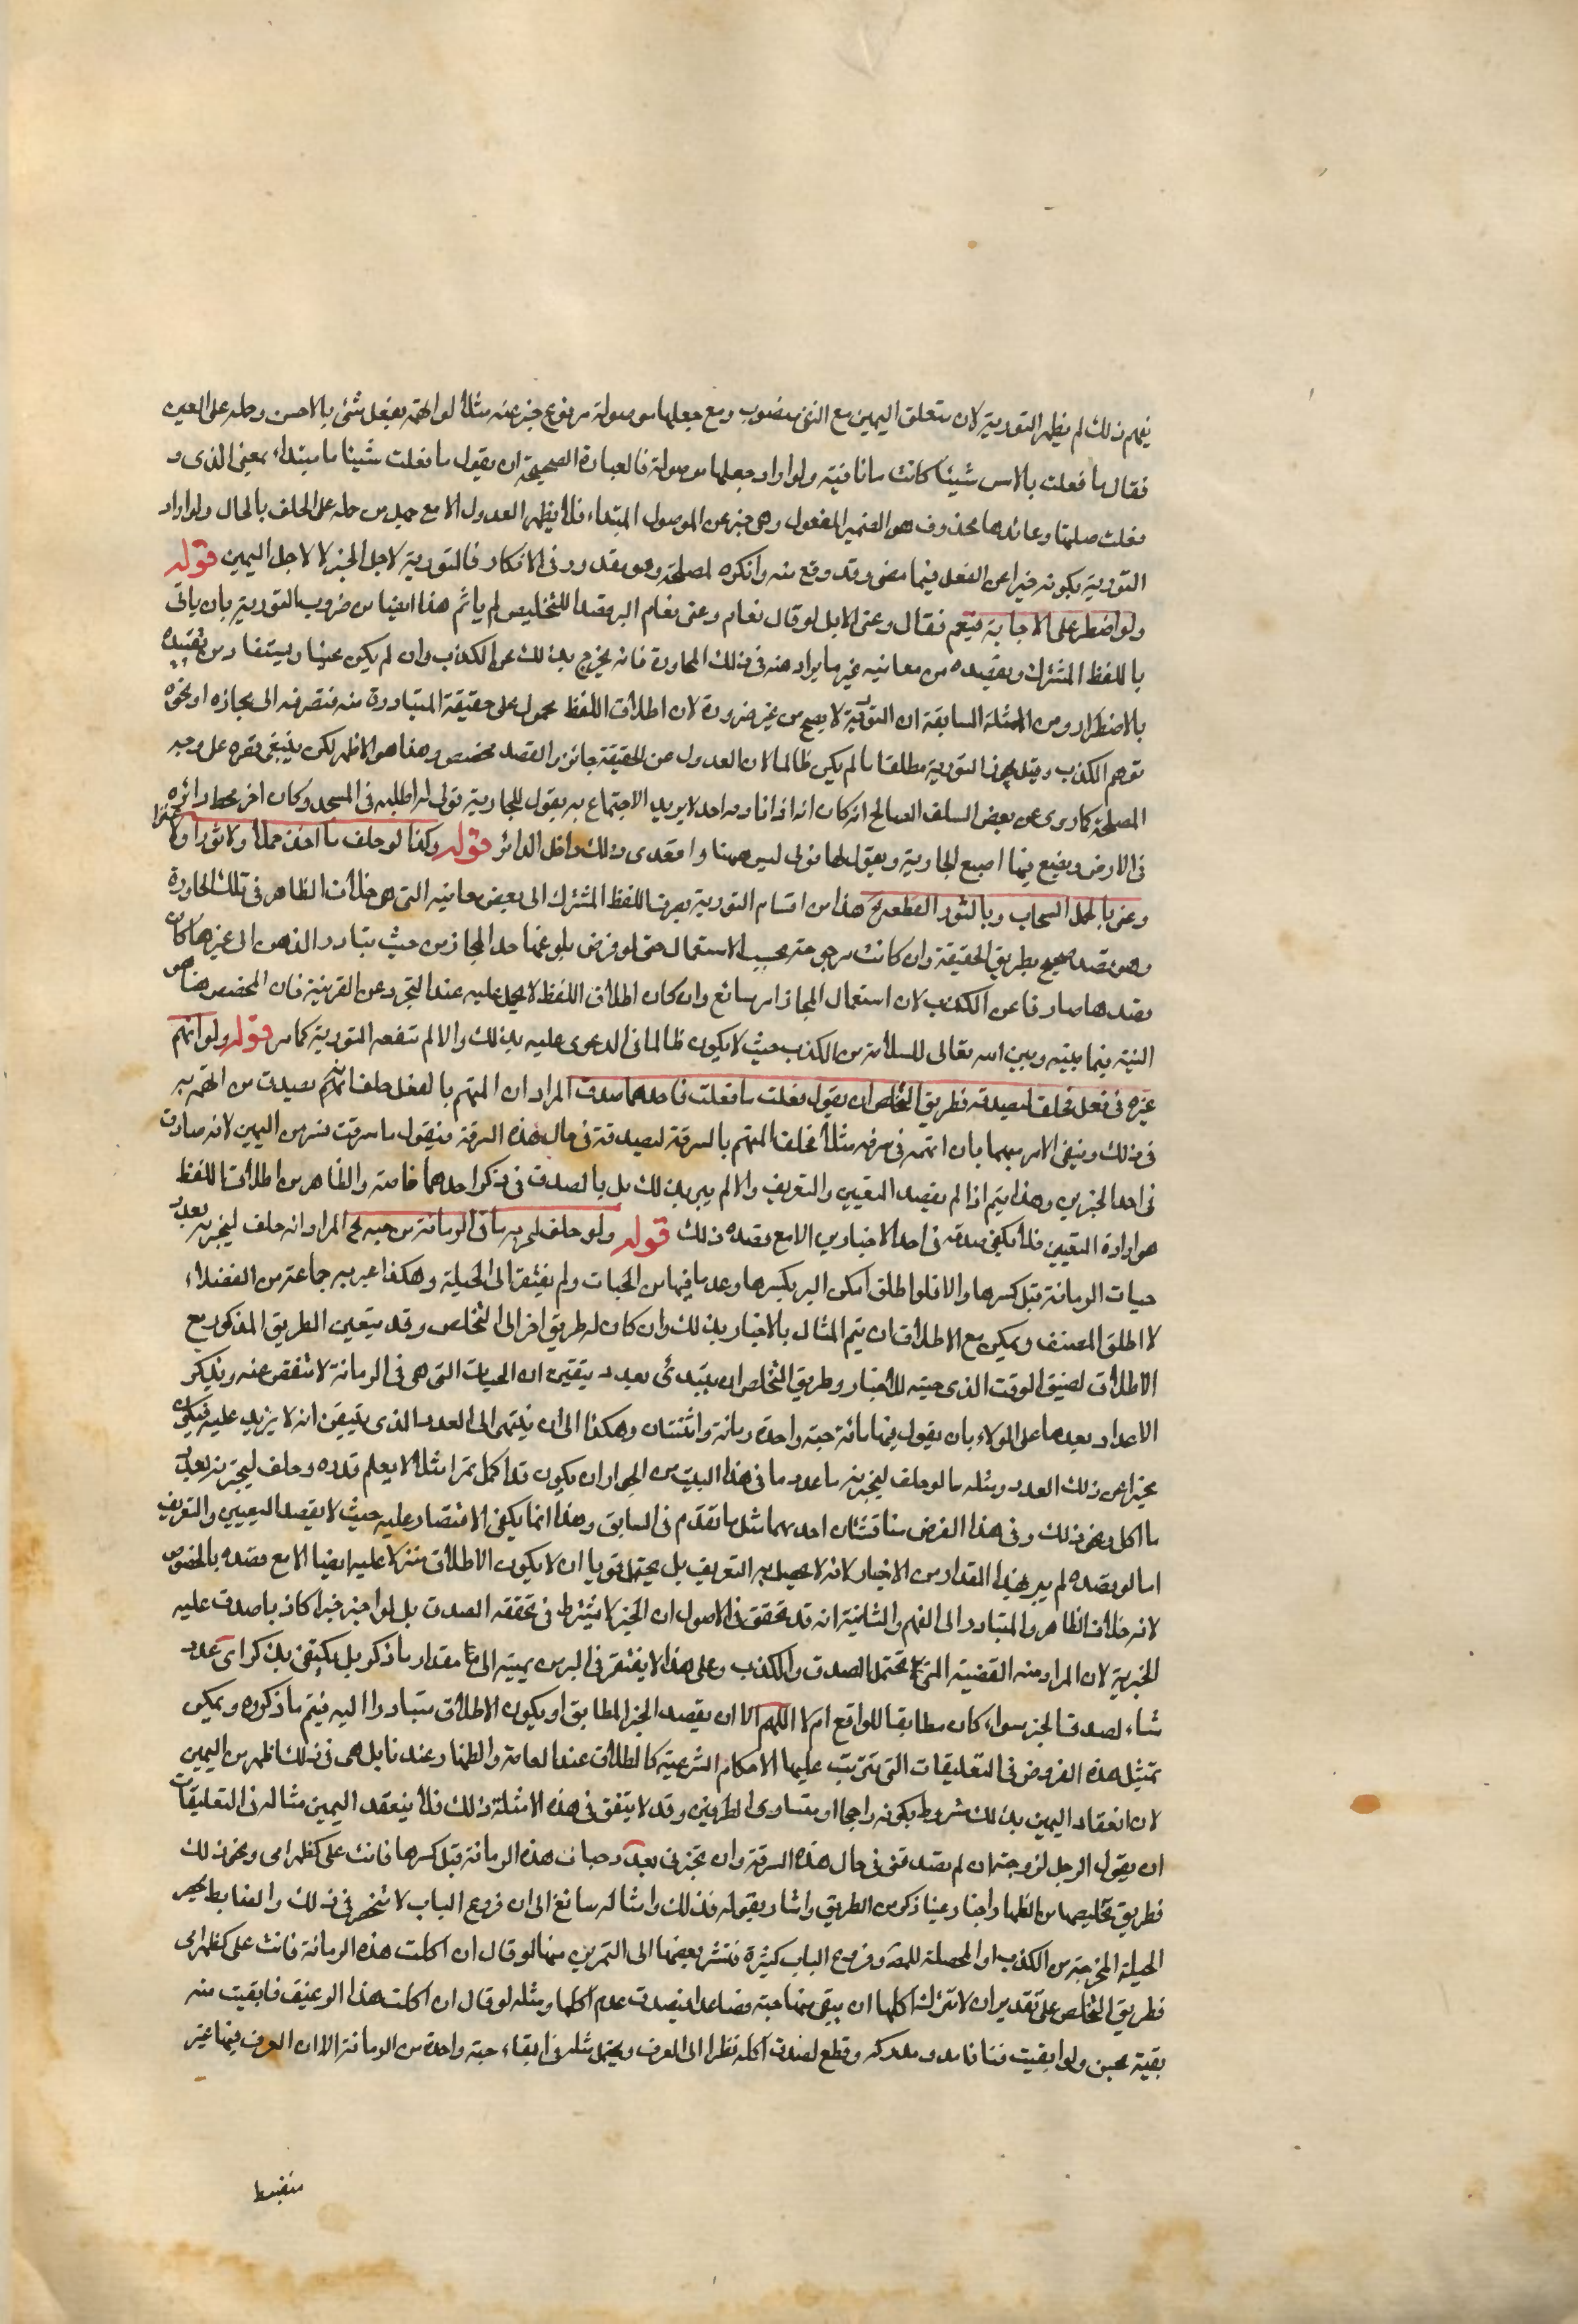 يفهم ذلك لم يظهر التورية لان متعلق اليمين مع النفي منصوب ومع جعلها موصولة مرفوع خبر عنه مثلا لو اتهمه بفعل شئ بالامس وحلفه على العين
فقال ما فعلت بالامس شيئا كانت ما نافية ولو اراد جعلها موصولة فالعبارة الصحيحة ان يقول ما فعلت شيئا ما مبتداء بمعنى الذى و
فعلت صلتها وعائدها محذوف هو الضمير المفعول وهى خبر عن الموصول المبتداء فلا يظهر العدول الا مع حمله على الحلف بالحال ولو اراد
التورية بكونه خبرا عن الفعل فيما مضى وقد وقع منه وانكره لمصلحة وهو يقدر فى الانكار فالتورية لاجل الخبر لا لاجل اليمين قوله
ولو اضطر على الاجابة فيعم فقال وعنى الابل لو قال نعام وعنى نعام البر وقصد التخليص لم ياثم هذا ايضا من ضروب التورية بان ياتى
باللفظ المشترك ويقصد من معانيه غير ما يراد منه فى تلك المحاورة فانه يخرج بذلك عن الكذب وان لم يكن عينا ويستفاد من تقييده
بالاضطرار ومن الامثلة السابقة ان التورية لا يصح من غير ضرورة لان اطلاق اللفظ محمول على حقيقة المتبادرة منه فتصرفه الى مجازه او نحوه
توهم الكذب وقيل يجوز التورية مطلقا ما لم يكن ظالما لان العدول عن الحقيقة جائز والقصد مخصص وهذا هو الاظهر لكن ينبغى قصره على وجه
المصلحة كما روى عن بعض السلف الصالح انه كان اذا اتاه احد لا يريد الاجتماع به يقول للجارية قولى له اطلبه فى المسجد وكان اخر يخط دائرة
فى الارض ويضع فيها اصبع الجارية ويقول لها قولى ليس ههنا واقصدى ذلك داخل الدائر قوله وكذا لو حلف ما اخذ جملا ولا ثورا ولا عنزا
وعنى بالجمل السحاب وبالثور القطعة الخ هذا من اقسام التورية بصرف اللفظ المشترك الى بعض معانيه التى هى خلاف الظاهر فى تلك المحاورة
وهو قصد صحيح بطريق الحقيقة وان كانت مرجوحة بحسب الاستعمال حتى لو فرض بلوغها حد المجاز من حيث يتبادر الذهن الى غيرها كان
قصدها صارفا عن الكذب لان استعمال المجاز امر سائغ وان كان اطلاق اللفظ لا يحمل عليه عند التجرد عن القرينة فان المخصص هنا هو
النية فيما بينه وبين الله تعالى للسلامة من الكذب حيث لا يكون ظالما فى الدعوى عليه بذلك والا لم تنفعه التورية كما مر قوله ولو اتهم
غيره فى فعل فحلف ليصدقنه فطريق التخلص ان يقول فعلت ما فعلت فاحدهما صدق المراد ان المتهم بالفعل حلف انه يصدق من اتهمه به
فى ذلك ويبقى الامر مبهما بان اتهمه فى سرقة مثلا فحلف المتهم بالسرقة ليصدقنه فى حال هذه السرقة فيقول ما سرقت سرقت من اليمين لانه صادق
فى احد الخبرين وهذا يتم اذا لم يقصد التعيين والتعريف والا لم يبر بذلك بل بالصدق فى ذكر احدهما خاصة والظاهر من اطلاق اللفظ
هو ارادة التعيين فلا يكفى صدقه فى احد الاخبارين الا مع قصده ذلك قوله ولو حلف ليخبرنه بما فى الرمانة من حبة الخ المراد انه حلف ليخبرنه بعدد
حبات الرمانة قبل كسرها والا فلو اطلق امكن البر بكسرها وعد ما فيها من الحبات ولم يفتقر الى الحيلة وهكذا عبر به جماعة من الفضلاء
لا اطلق المصنف ويمكن مع الاطلاق ان يتم المثال بالاخبار بذلك وان كان له طريق اخر الى التخلص وقد يتعين الطريق المذكور مع
الاطلاق لضيق الوقت الذى عينه للاخبار وطريق التخلص ان يبتدئ بعدد يتيقن ان الحبات التى هى فى الرمانة لا تنقص عنه ويذكر
الاعداد بعدها على الولاء بان يقول فيها مائة حبة واحدة ومائة واثنتان وهكذا الى ان ينتهى الى العدد الذى يتيقن انه لا يزيد عليه فيكون
مخبرا عن ذلك العدد ومثله ما لو حلف ليخبرنه ما عدد ما فى هذا البيت من الجوز او ان يكون قد اكل تمرا مثلا لا يعلم قدره وحلف ليخبرنه بعدد
ما اكل ونحو ذلك وفى هذا الفرض مناقشتان احديهما مثل ما تقدم فى السابق وهذا انما يكفى الاقتصار عليه حيث لا يقصد التعيين والتعريف
اما لو قصده لم يبر بهذا القدر من الاخبار لانه لا يحصل به التعريف بل يحتمل قويا ان لا يكون الاطلاق منزلا عليه ايضا الا مع قصده بالخصوص
لانه خلاف الظاهر والمتبادر الى الفهم والثانية انه قد تحقق فى الاصول ان الخبر لا يشترط فى تحققه الصدق بل لو اخبر خبرا كاذبا صدق عليه
الخبرية لان المراد منه القضية التى تحتمل الصدق والكذب وعلى هذا لا يفتقر فى البر من يمينه الى مقدار ما ذكر بل يكتفى بذكر اى عدد
شاء لصدق الخبر سواء كان مطابقا للواقع ام لا اللهم الا ان يقصد الخبر المطابق او يكون الاطلاق متبادرا اليه فيتم ما ذكروه ويمكن
تمثيل هذه الفروض فى التعليقات التى تترتب عليها الاحكام الشرعية كالطلاق عند العامة والظهار عندنا بل هى فى ذلك اظهر من اليمين
لان انعقاد اليمين بذلك مشروط بكونه راجحا او متساوى الطرفين وقد لا يتفق فى هذه الامثلة ذلك فلا ينعقد اليمين مثاله فى التعليقات
ان يقول الرجل لزوجته ان لم تصدقنى فى حال هذه السرقة وان تخبرنى بعدد حبات هذه الرمانة قبل كسرها فانت على كظهر امى ونحو ذلك
فطريق تخليصها من الظهار اخبارها بما ذكر من الطريق واشار بقوله فذلك وامثاله سائغ الى ان فروع الباب لا تنحصر فى ذلك والضابط
الحيلة المخرجة من الكذب او المحصلة للبر وفروع الباب كثيرة فنشر بعضها الى التمرين منها لو قال ان اكلت هذه الرمانة فانت على كظهر امى
فطريق التخلص على تقدير ان لا تترك اكلها ان يبقى منها حبة فصاعدا ليصدق عدم اكلها ومثله لو قال ان اكلت هذا الرغيف فابقيت منه
بقية تحس ولو ابقيت فتاتا مدرك وقطع لصدق اكله نظرا الى العرف ويحتمل مثله فى ابقاء حبة واحدة من الرمانة الا ان العرف فيها غير
منضبط